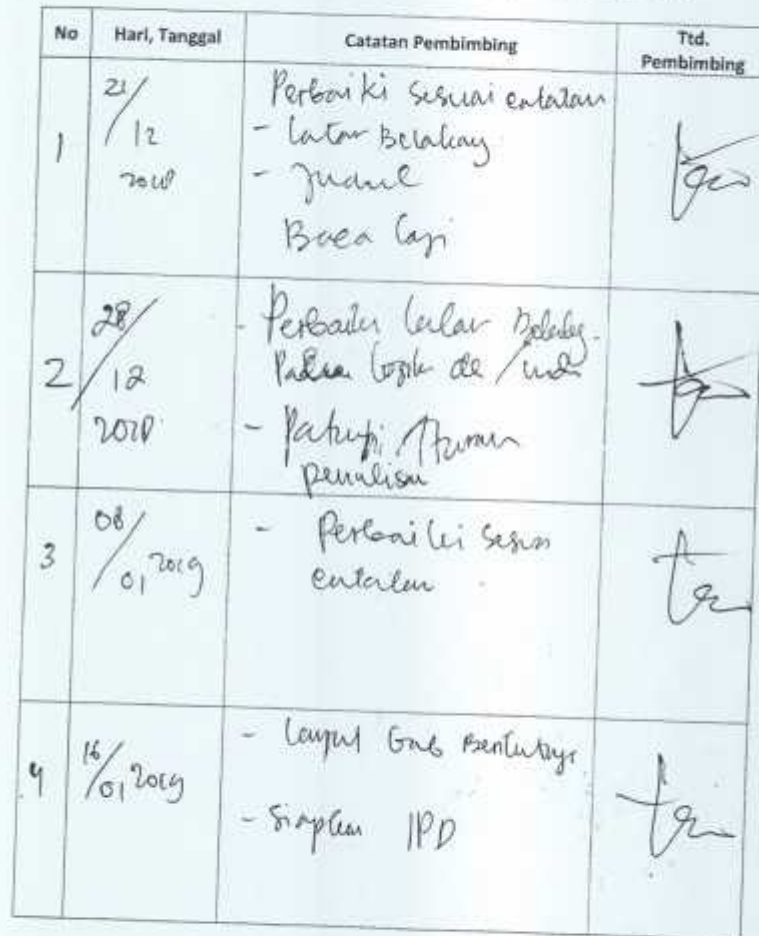 No Hari, Tanggal Catatan Pembimbing Ttd. Pembimbing
1 21/12 2018 Perbaiki sesuai catatan
- Latar Belakang
- Judul
Baca lagi
2 28/12 2018 - Perbaiki latar Belakang
- Patuhi Aturan
penulisan
3 08/01 2019 - Perbaiki sesuai
catatan
4 16/01 2019 - Lanjut Bab Berikutnya
- Siapkan IPD